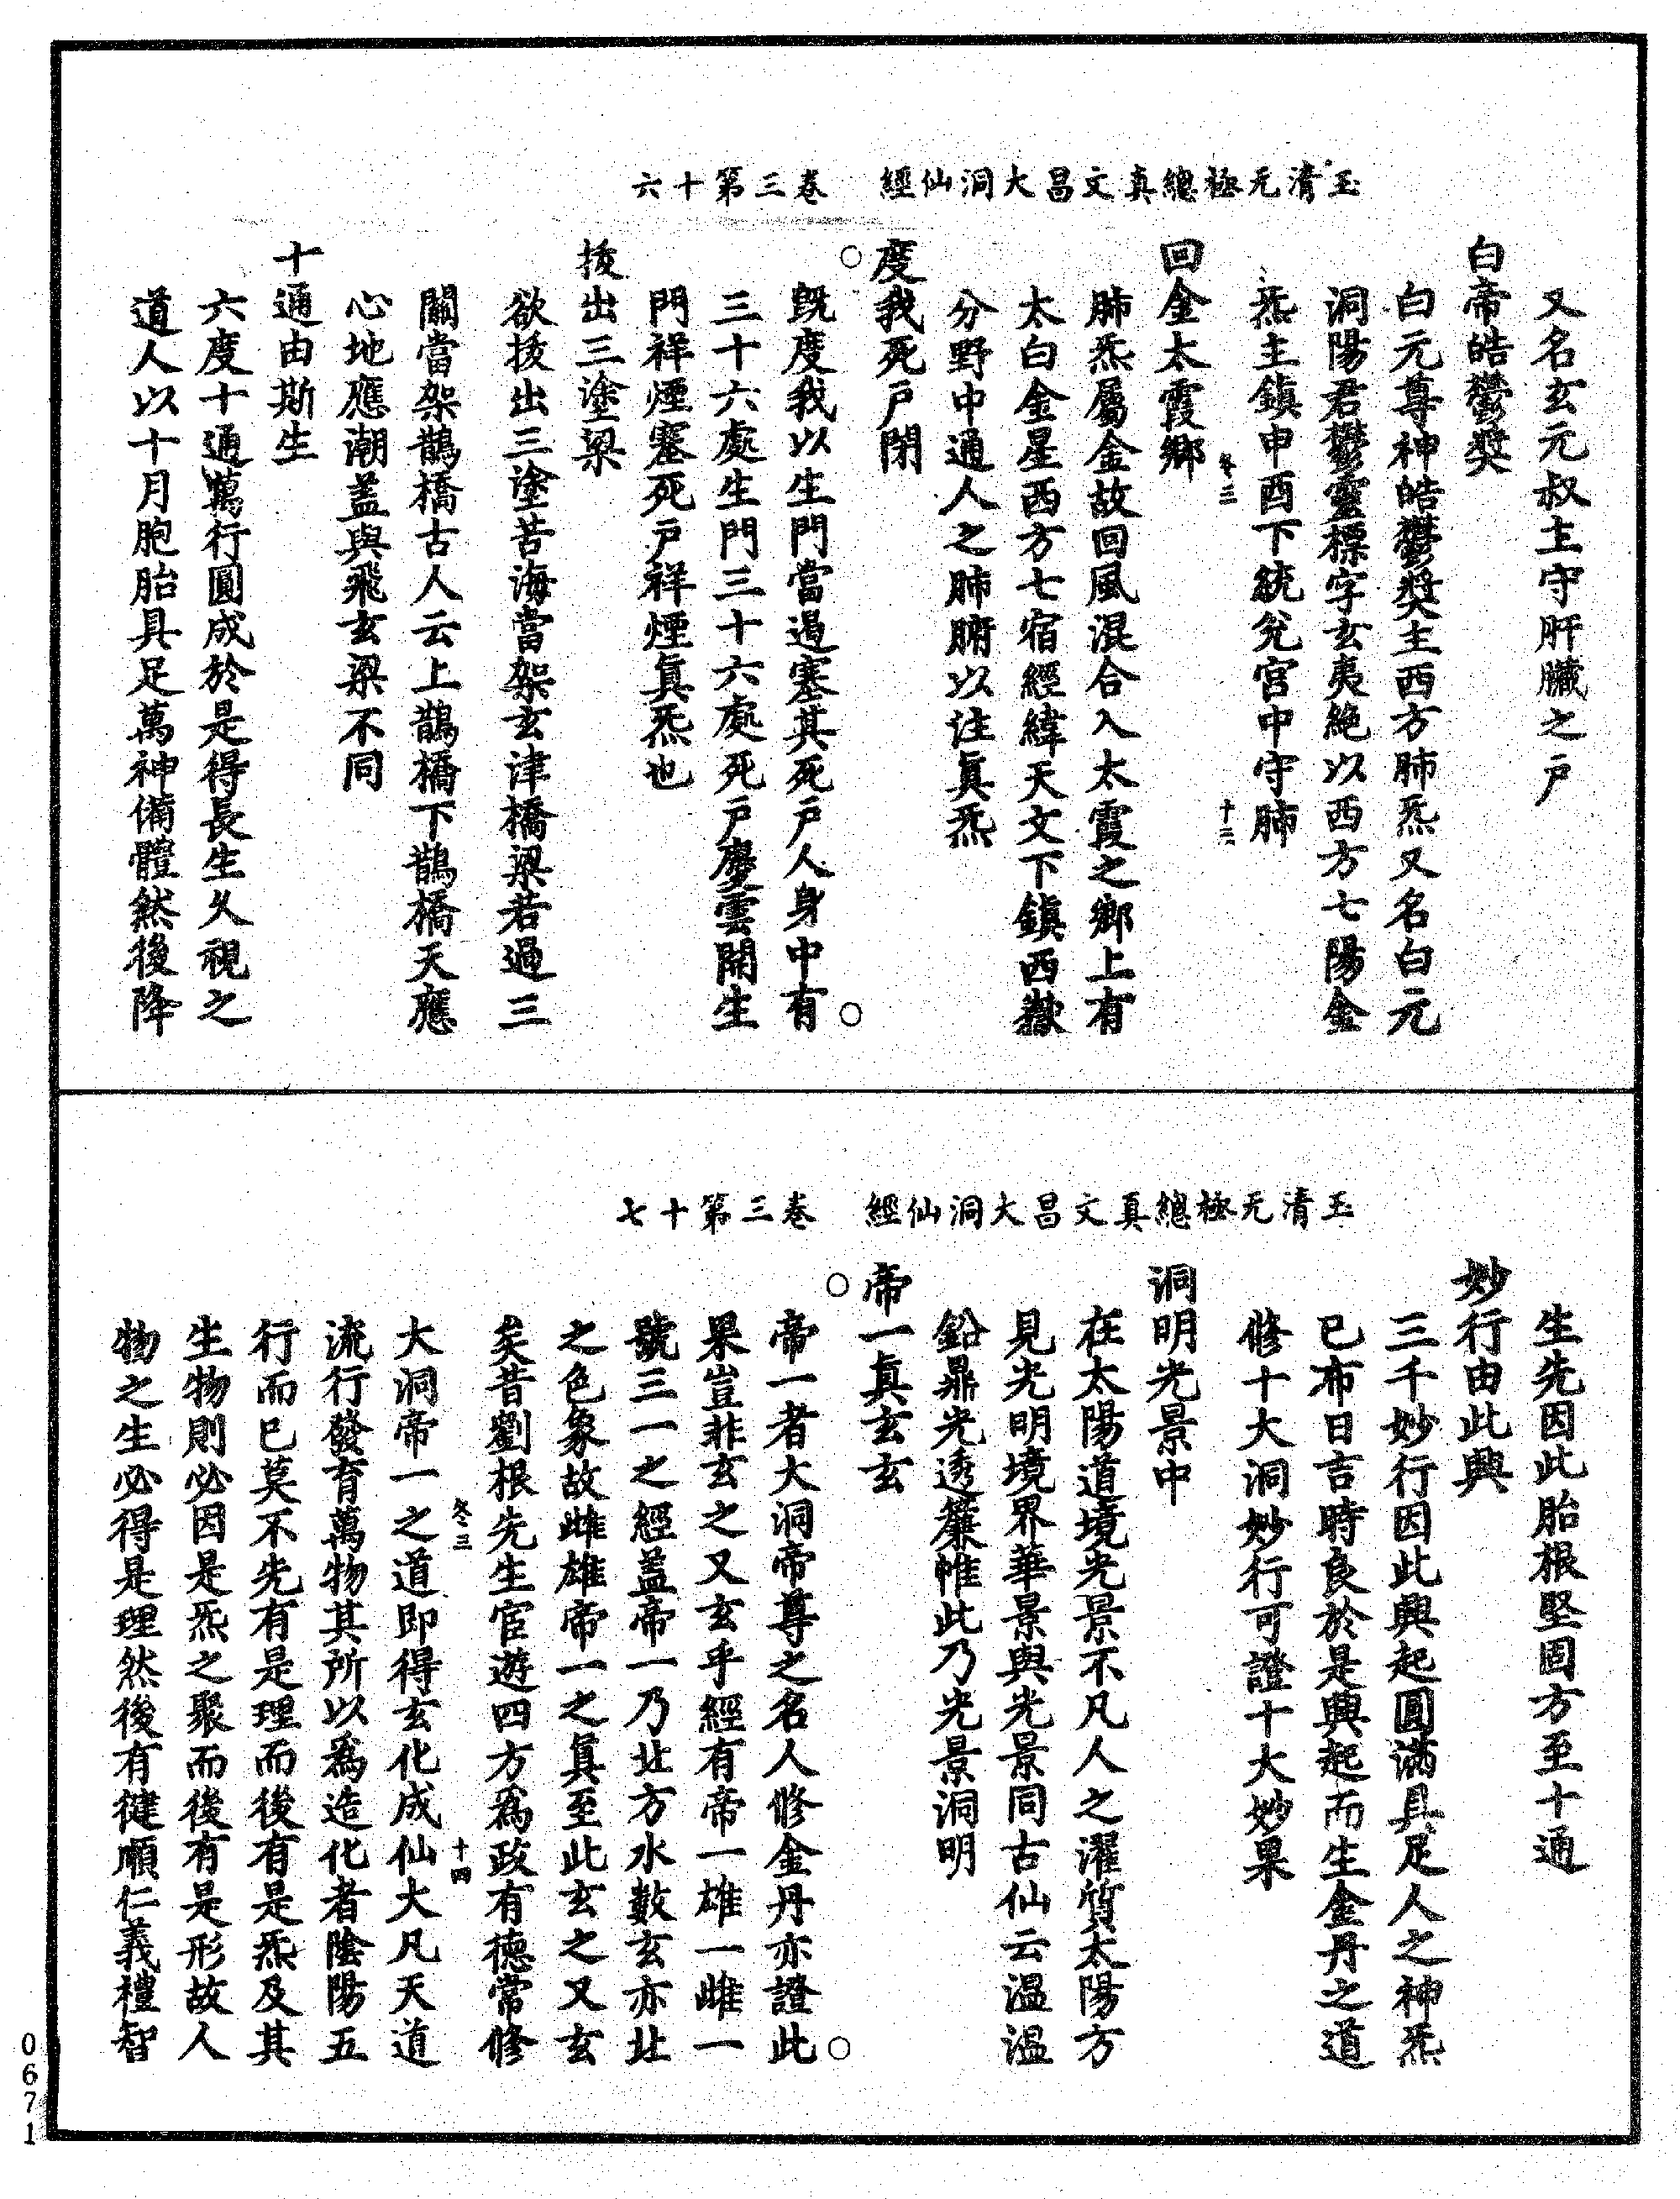 玉清元極總真文昌大洞仙經　卷三第十六
又名玄元叔主守肝臟之戶
白帝皓鬱奘
白元尊神皓鬱奘主西方肺炁又名白元
洞陽君鬱靈標字玄夷絕以西方七陽金
炁主鎮申酉下統兌宮中守肺
冬三　十三
回金太霞鄉
肺炁屬金故回風混合入太霞之鄉上有
太白金星西方七宿經緯天文下鎮西嶽
分野中通人之肺腑以注真炁
度我死戶閉
既度我以生門當過塞其死戶人身中有
三十六處生門三十六處死戶慶雲開生
門祥煙塞死戶祥煙真炁也
拔出三塗梁
欲拔出三塗苦海當架玄津橋梁若過三
關當架鵲橋古人云上鵲橋下鵲橋天應
心地應潮蓋與飛玄梁不同
十通由斯生
六度十通萬行圓成於是得長生久視之
道人以十月胞胎具足萬神備體然後降
玉清无極總真文昌大洞仙經　卷三第十七
生先因此胎根堅固方至十通
妙行由此興
三千妙行因此興起圓滿具足人之神炁
已布日吉時良於是興起而生金丹之道
修十大洞妙行可證十大妙果
洞明光景中
在太陽道境光景不凡人之濯質太陽方
見光明境界華景與光景同古仙云溫溫
鉛鼎光透簾帷此乃光景洞明
帝一真玄玄
帝一者大洞帝尊之名人修金丹亦證此
果豈非玄之又玄乎經有帝一雄一雌一
號三一之經蓋帝一乃北方水數玄亦北
之色象故雌雄帝一之真至此玄之又玄
矣昔劉根先生官遊四方為政有德常修
冬三　十四
大洞帝一之道即得玄化成仙大凡天道
流行發育萬物其所以為造化者陰陽五
行而已莫不先有是理而後有是炁及其
生物則必因是炁之聚而後有是形故人
物之生必得是理然後有健順仁義禮智
0671